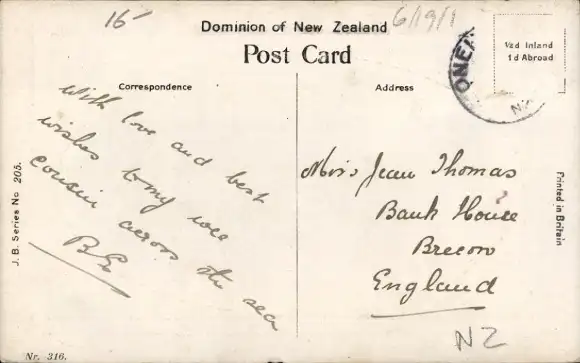 16-
6/19/1
Dominion of New Zealand
Post Card
½d Inland
1d Abroad
ONEA
NZ
Correspondence
Address
With love and best
wishes to my wee
cousin across the sea
BE
Miss Jean Thomas
Bank House
Brecon
England
NZ
J.B. Series No 205.
Printed in Britain
Nr. 316.